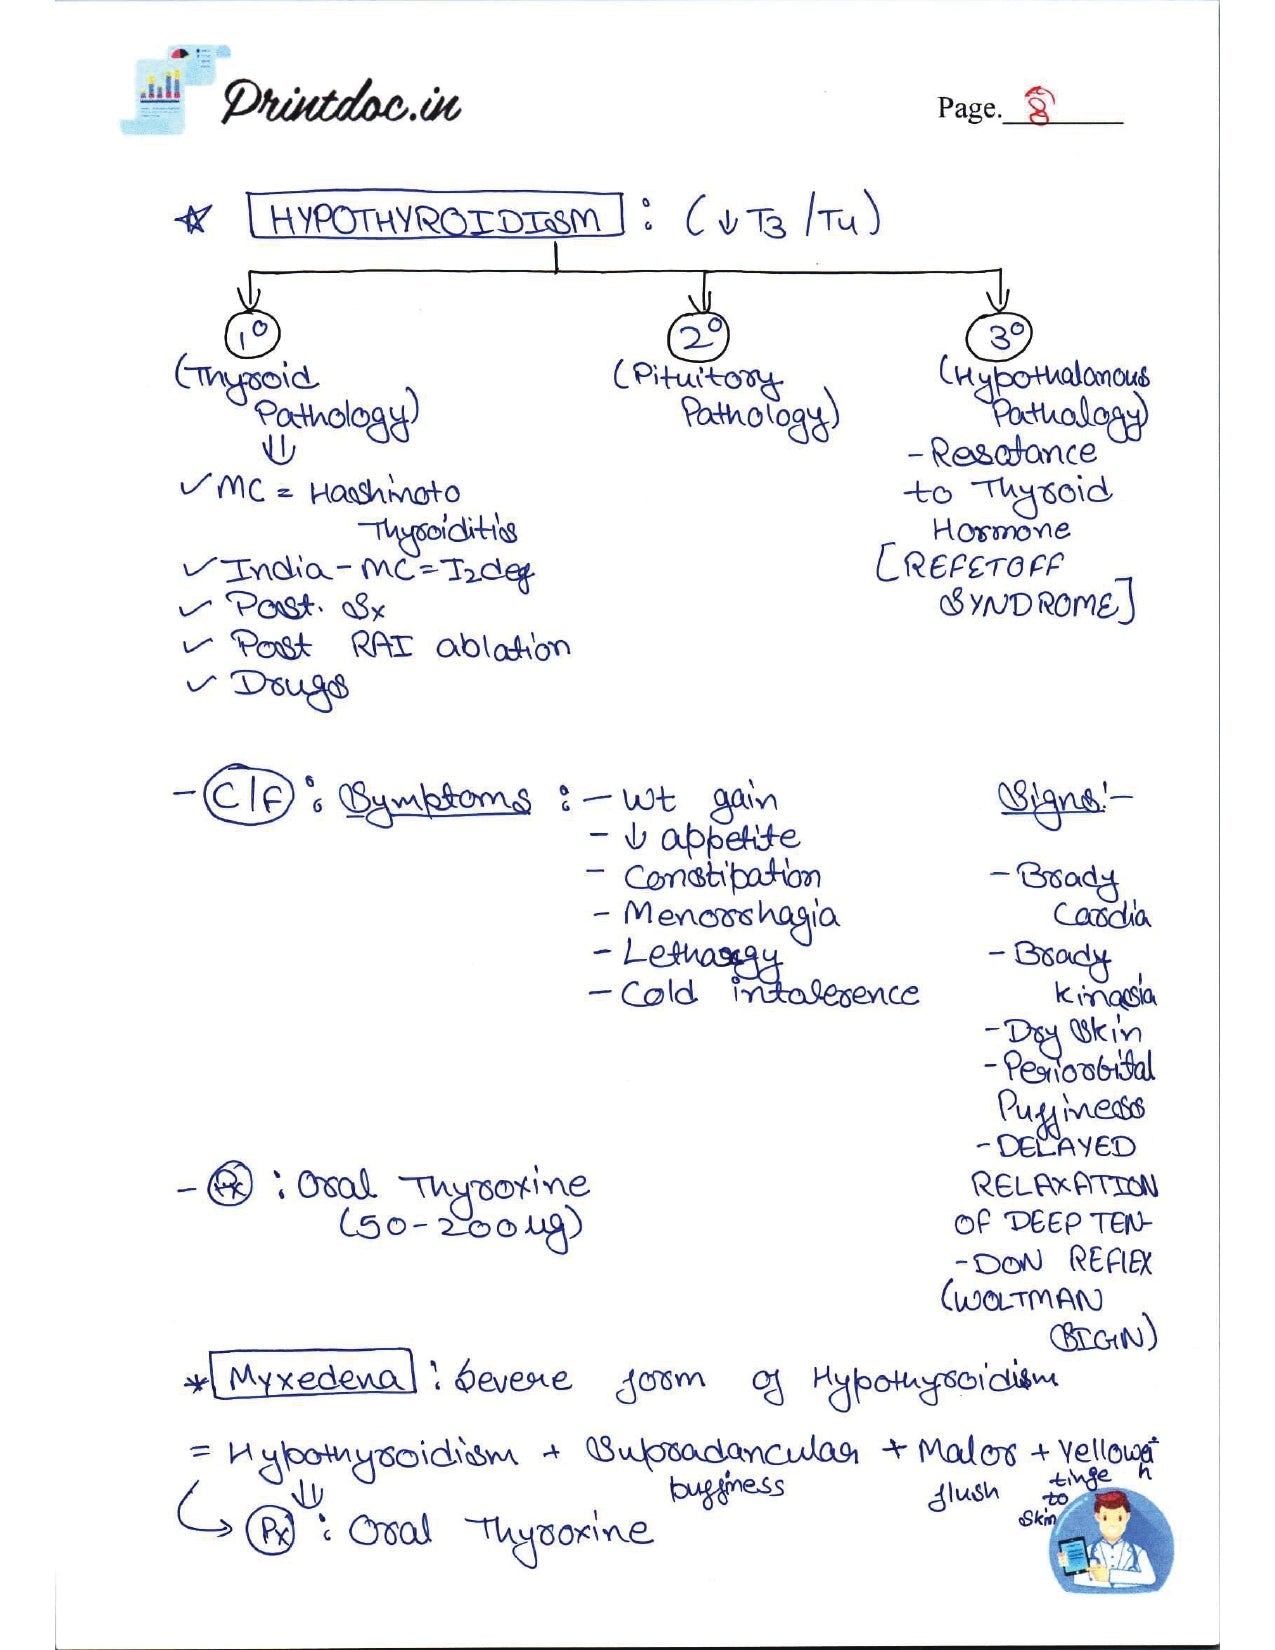 Printdoc.in
Page. 8
☆ HYPOTHYROIDISM : (↓ T3 /T4)
1° 2° 3°
(Thyroid (Pituitory (Hypothalamous
Pathology) Pathology) Pathalogy)
⇓ - Resatance
✓ MC = Hashimoto to Thyroid
Thyroiditis Hormone
✓ India - MC = I2 def [REFETOFF
✓ Post. Sx SYNDROME]
✓ Post RAI ablation
✓ Drugs
- C/F : Symptoms : - Wt gain Signs:-
- ↓ appetite
- Constipation - Brady
- Menorrhagia Cardia
- Lethargy - Brady
- Cold intalerence kinasia
- Dry Skin
- Periorbital
Puffiness
- DELAYED
- Rx : Oral Thyroxine RELAXATION
(50-200 ug) OF DEEP TEN-
- DON REFLEX
(WOLTMAN
SIGN)
* Myxedena : Severe form of Hypothyroidism
= Hypothyroidism + Supradancular + Malor + Yellowish
puffiness flush tinge
⇓ to
Skin
Rx : Oral Thyroxine